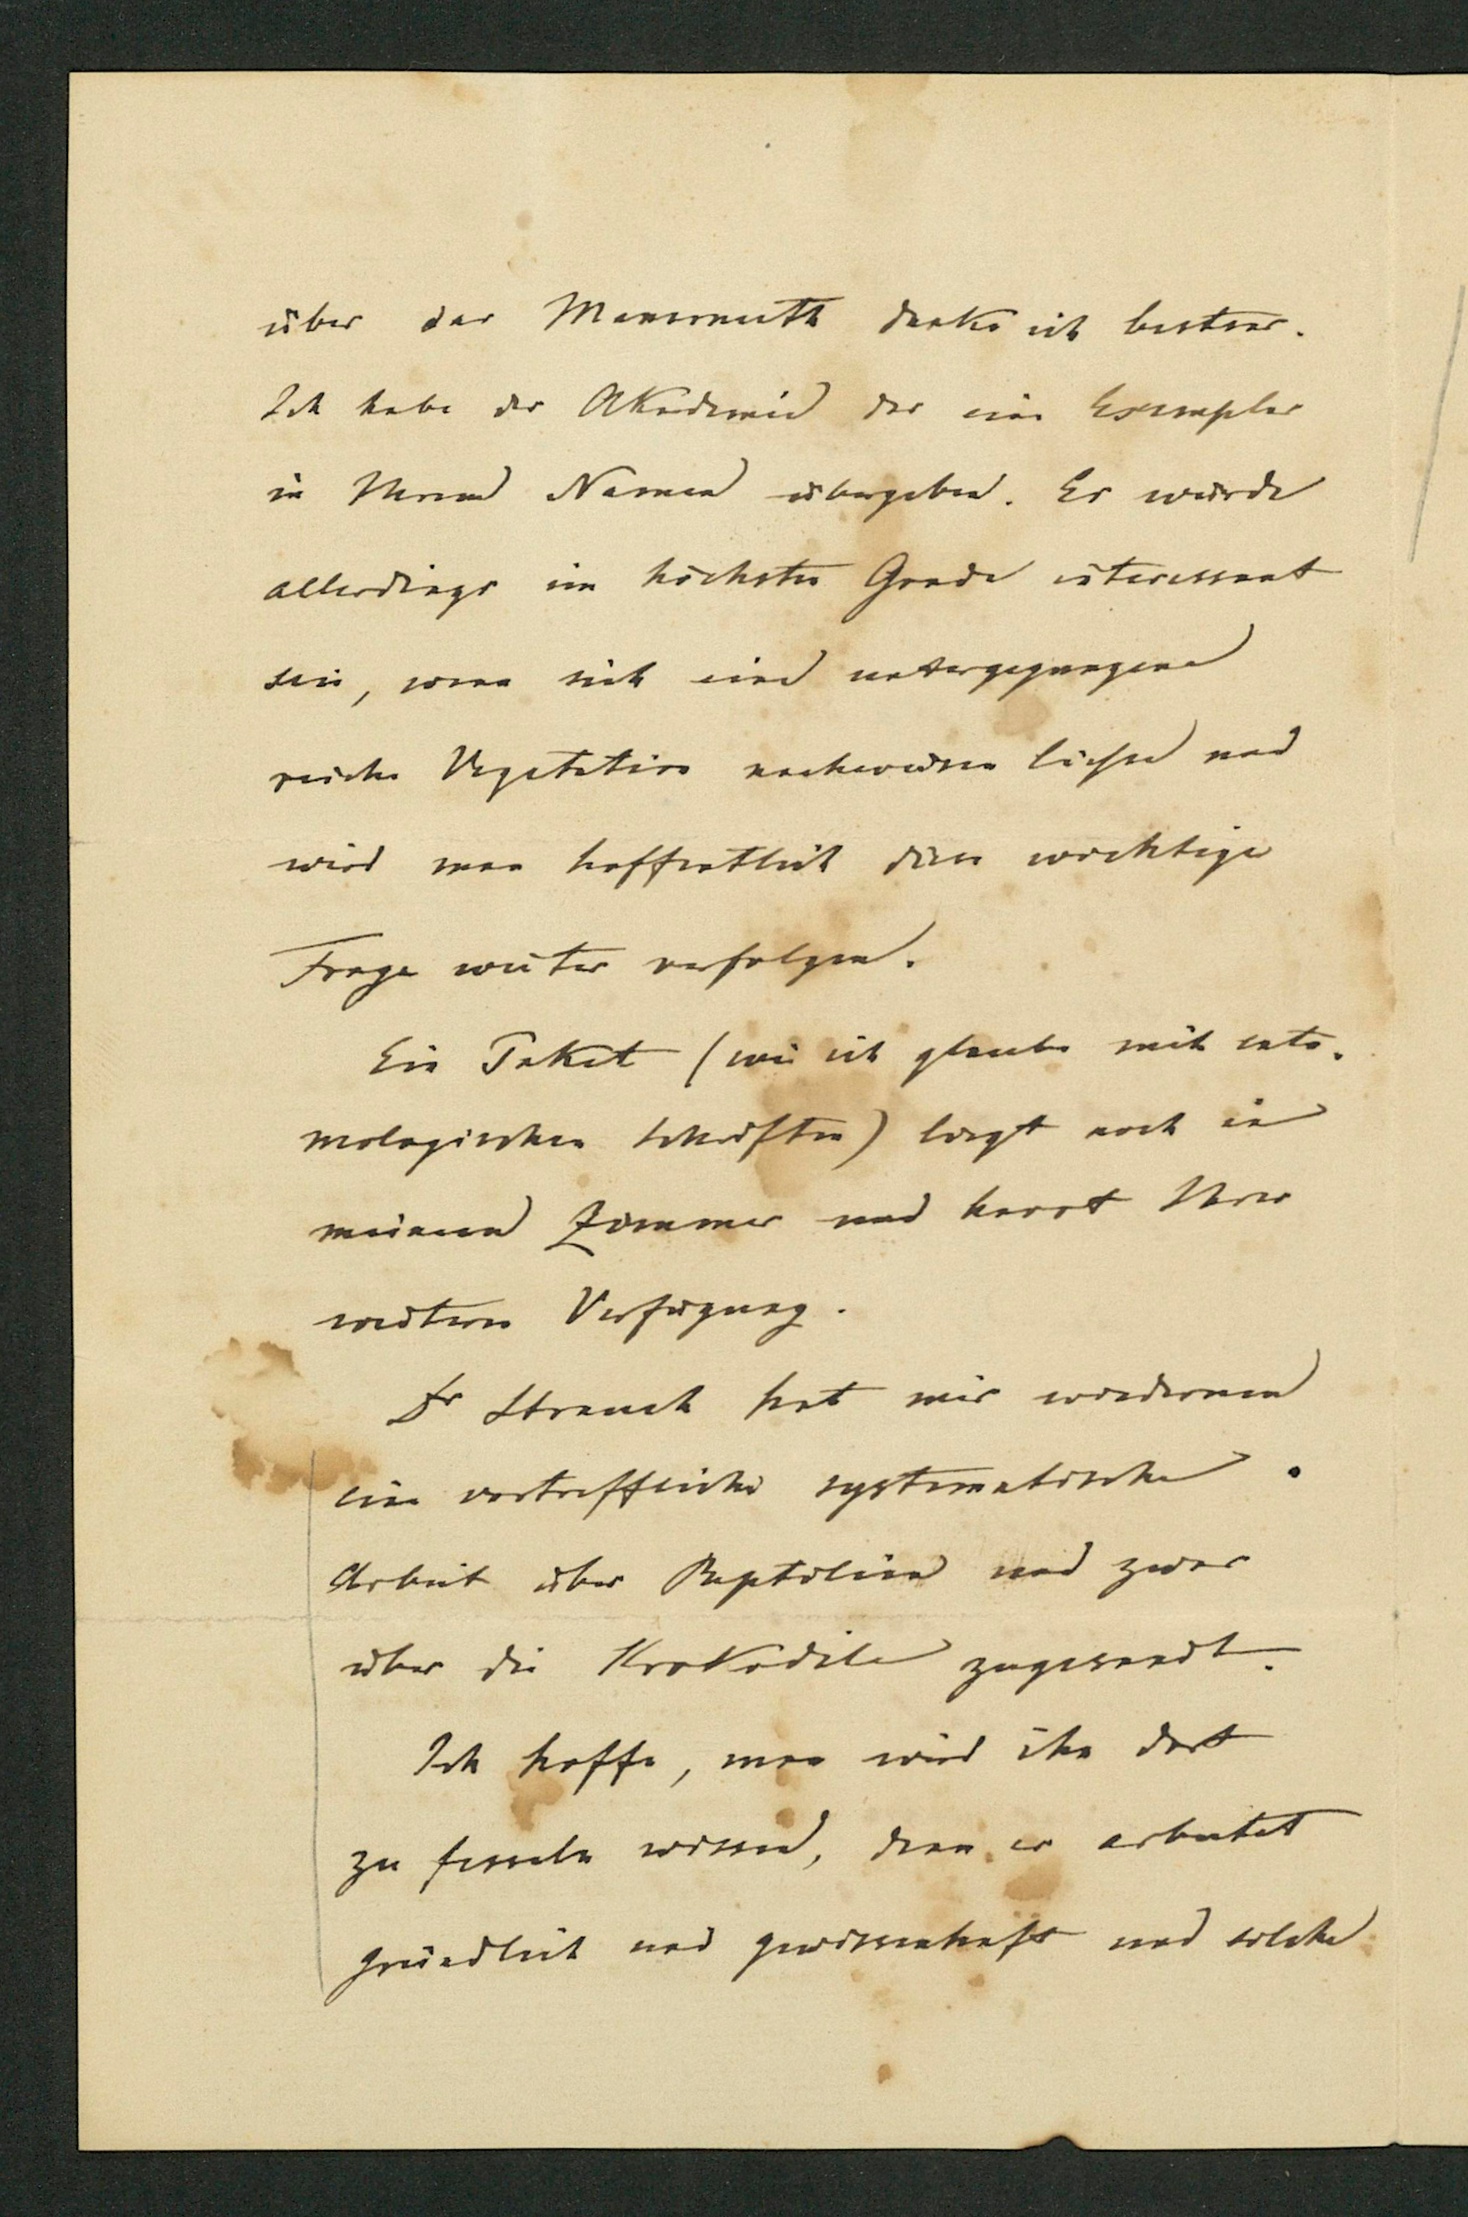 über das Mammuth danke ich bestens.
Ich habe der Akademie das eine Exemplar
in Ihrem Namen übergeben. Es würde
allerdings im höchsten Grade interessant
sein, wenn sich eine untergegangene
reiche Vegetation nachweisen liesse und
wird man hoffentlich diese wichtige
Frage weiter verfolgen.
Ein Paket (wie ich glaube mit ento-
mologischen Schriften) liegt noch in
meinem Zimmer und harrt Ihrer
weitern Verfügung.
Dr Strauch hat mir wiederum
eine vortreffliche systematische
Arbeit über Reptilien und zwar
über die Krokodile zugesandt.
Ich hoffe, man wird ihn dort
zu fesseln wissen, denn er arbeitet
gründlich und gewissenhaft und solche